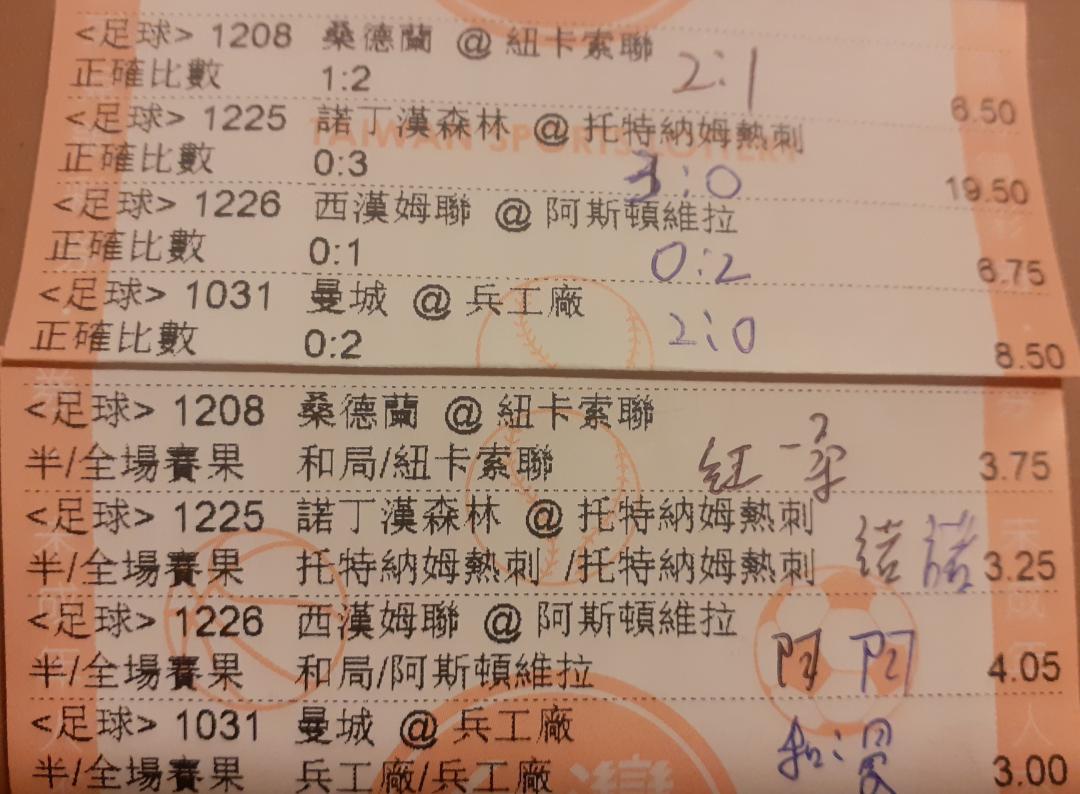 <足球> 1208 桑德蘭 @ 紐卡索聯
正確比數 1:2 2:1 6.50
<足球> 1225 諾丁漢森林 @ 托特納姆熱刺
TAIWAN SPORTS LOTTERY
正確比數 0:3 3:0 19.50
<足球> 1226 西漢姆聯 @ 阿斯頓維拉
正確比數 0:1 0:2 6.75
<足球> 1031 曼城 @ 兵工廠
正確比數 0:2 2:0 8.50
<足球> 1208 桑德蘭 @ 紐卡索聯
半/全場賽果 和局/紐卡索聯 3.75
<足球> 1225 諾丁漢森林 @ 托特納姆熱刺
半/全場賽果 托特納姆熱刺 /托特納姆熱刺 諾 諾 3.25
<足球> 1226 西漢姆聯 @ 阿斯頓維拉
半/全場賽果 和局/阿斯頓維拉 阿 阿 4.05
<足球> 1031 曼城 @ 兵工廠
半/全場賽果 兵工廠/兵工廠 和:曼 3.00